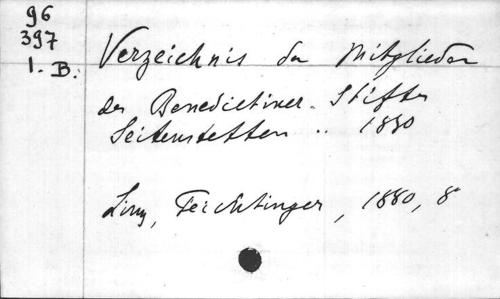 96
397
1. B.
Verzeichnis der Mitglieder
des Benedictiner-Stiftes
Seitenstetten .. 1880
Linz, Feichtinger, 1880, 8°